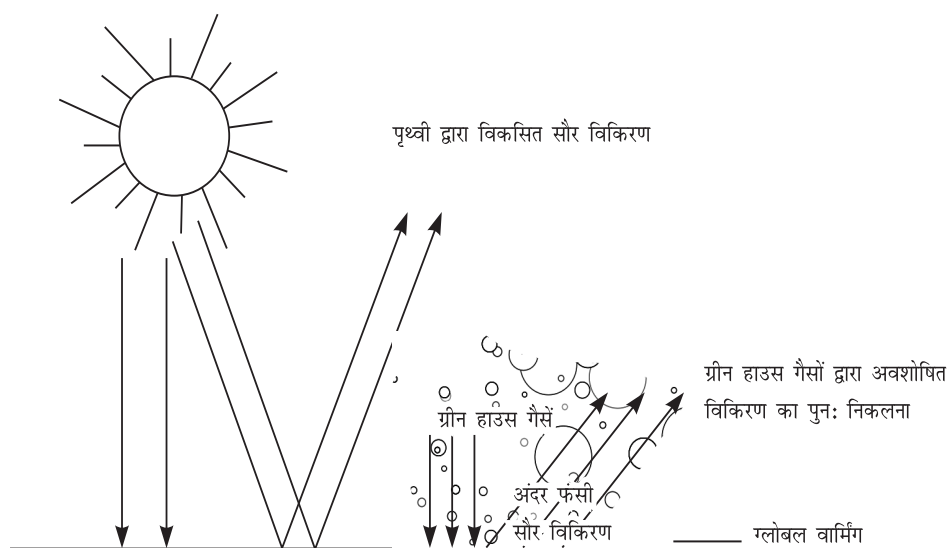 पृथ्वी द्वारा विकसित सौर विकिरण
ग्रीन हाउस गैसों द्वारा अवशोषित
विकिरण का पुन: निकलना
ग्रीन हाउस गैसें
अंदर फंसी
सौर विकिरण
ग्लोबल वार्मिंग